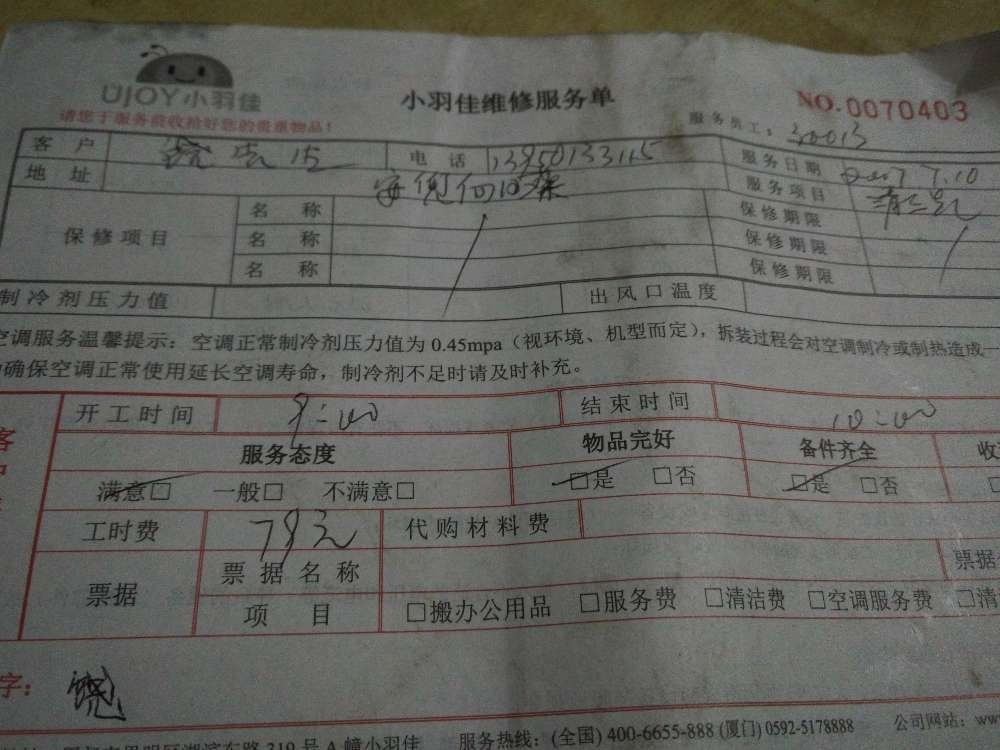 UJOY小羽佳
小羽佳维修服务单
NO.0070403
请您于服务前收拾好您的贵重物品!
服务员工: 30013
客 户 电 话 13950133115 服务日期 7.10
地 址 服务项目
保修项目 名 称 保修期限
名 称 保修期限
名 称 保修期限
制冷剂压力值 出风口温度
空调服务温馨提示:空调正常制冷剂压力值为 0.45mpa(视环境、机型而定),拆装过程会对空调制冷或制热造成一
确保空调正常使用延长空调寿命,制冷剂不足时请及时补充。
开工时间 9:00 结束时间 10:00
服务态度 物品完好 备件齐全 收
满意□ 一般□ 不满意□ □是 □否 □是 □否
工时费 79元 代购材料费
票据 票据名称 票据
项 目 □搬办公用品 □服务费 □清洁费 □空调服务费 □清
字: 饶
湖滨东路 319 号 A 幢小羽佳 服务热线:(全国) 400-6655-888 (厦门) 0592-5178888 公司网站:www